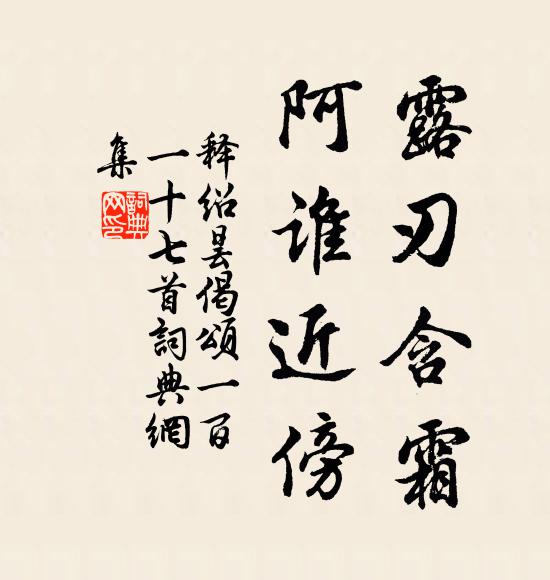 露刃含霜
阿谁近傍
释绍昙偈颂一百
一十七首詞典網
集
詞典網印